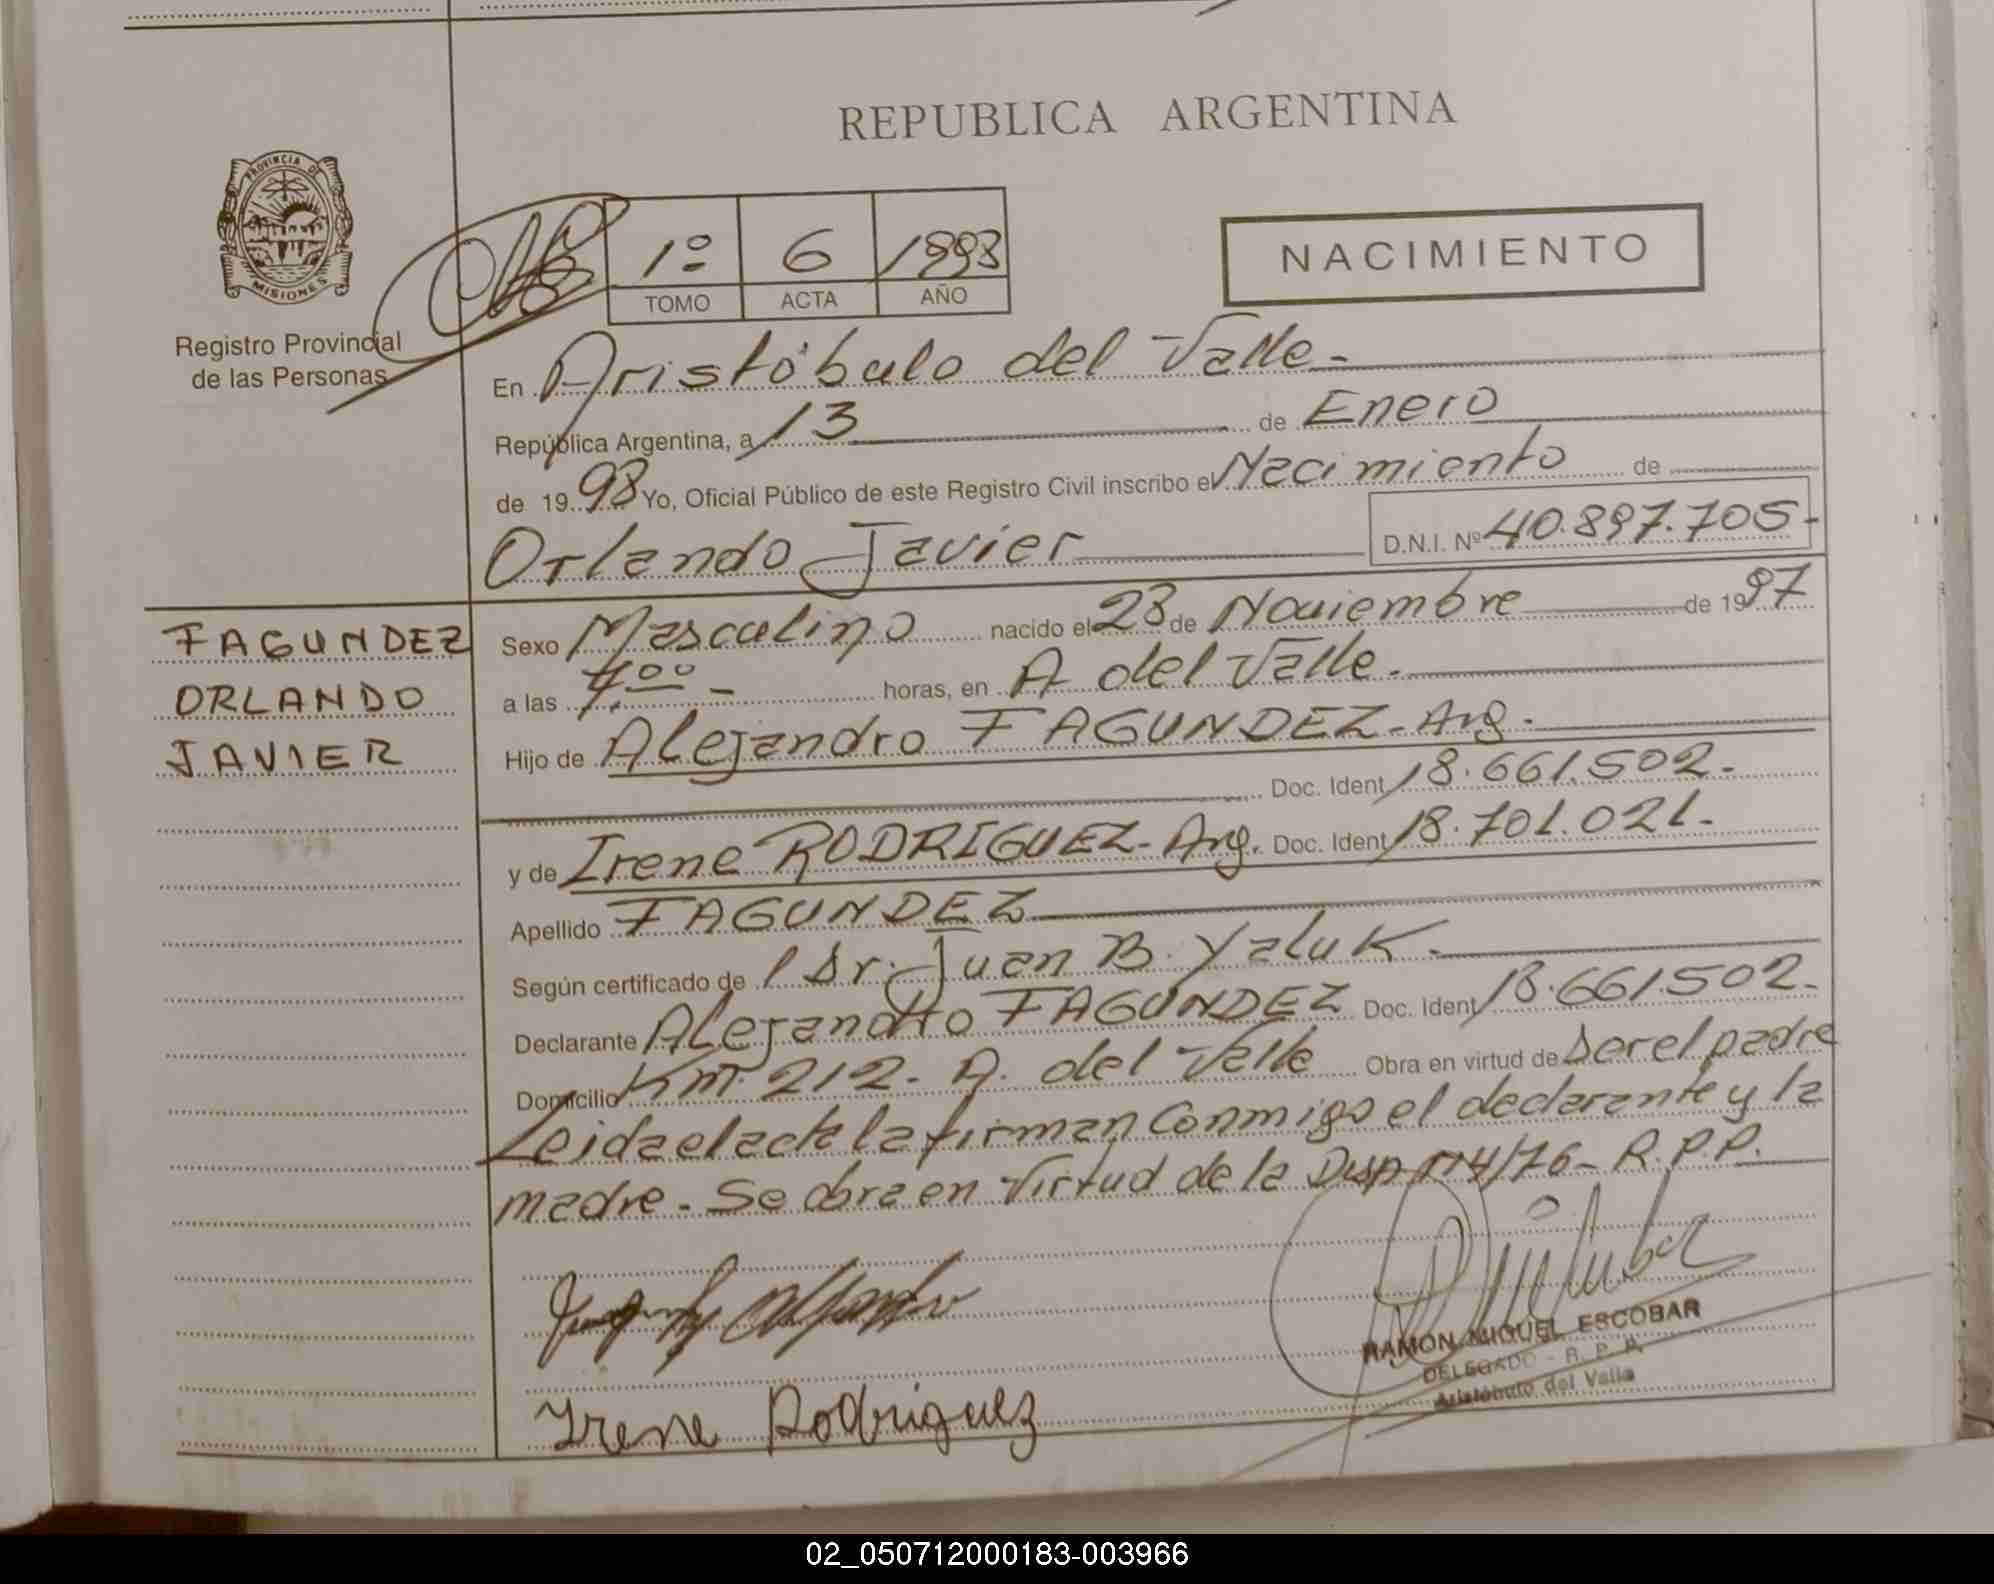 REPUBLICA ARGENTINA
PROVINCIA DE
MISIONES
Registro Provincial
de las Personas
1º 6 1998
TOMO ACTA AÑO
NACIMIENTO
En Aristóbulo del Valle.-
República Argentina, a 13 de Enero
de 1998 Yo, Oficial Público de este Registro Civil inscribo el Nacimiento de
Orlando Javier D.N.I. Nº 40.897.705-
FAGUNDEZ
ORLANDO
JAVIER
Sexo Masculino nacido el 28 de Noviembre de 1997
a las 4.00 - horas, en A del Valle.
Hijo de Alejandro FAGUNDEZ- Arg.
Doc. Ident 18.661.502.
y de Irene RODRIGUEZ- Arg. Doc. Ident 18.701.021.
Apellido FAGUNDEZ
Según certificado de l Dr. Juan B. Yaluk.
Declarante Alejandro FAGUNDEZ Doc. Ident 18.661.502.
Domicilio Km. 212- A. del Valle Obra en virtud de ser el padre
Leida el acta la firman conmigo el declarante y la
madre.- Se obra en virtud de la Disp 114/76- R.P.P.
RAMON MIGUEL ESCOBAR
DELEGADO - R. P. P.
Aristóbulo del Valle
Irene Rodriguez
02_050712000183-003966